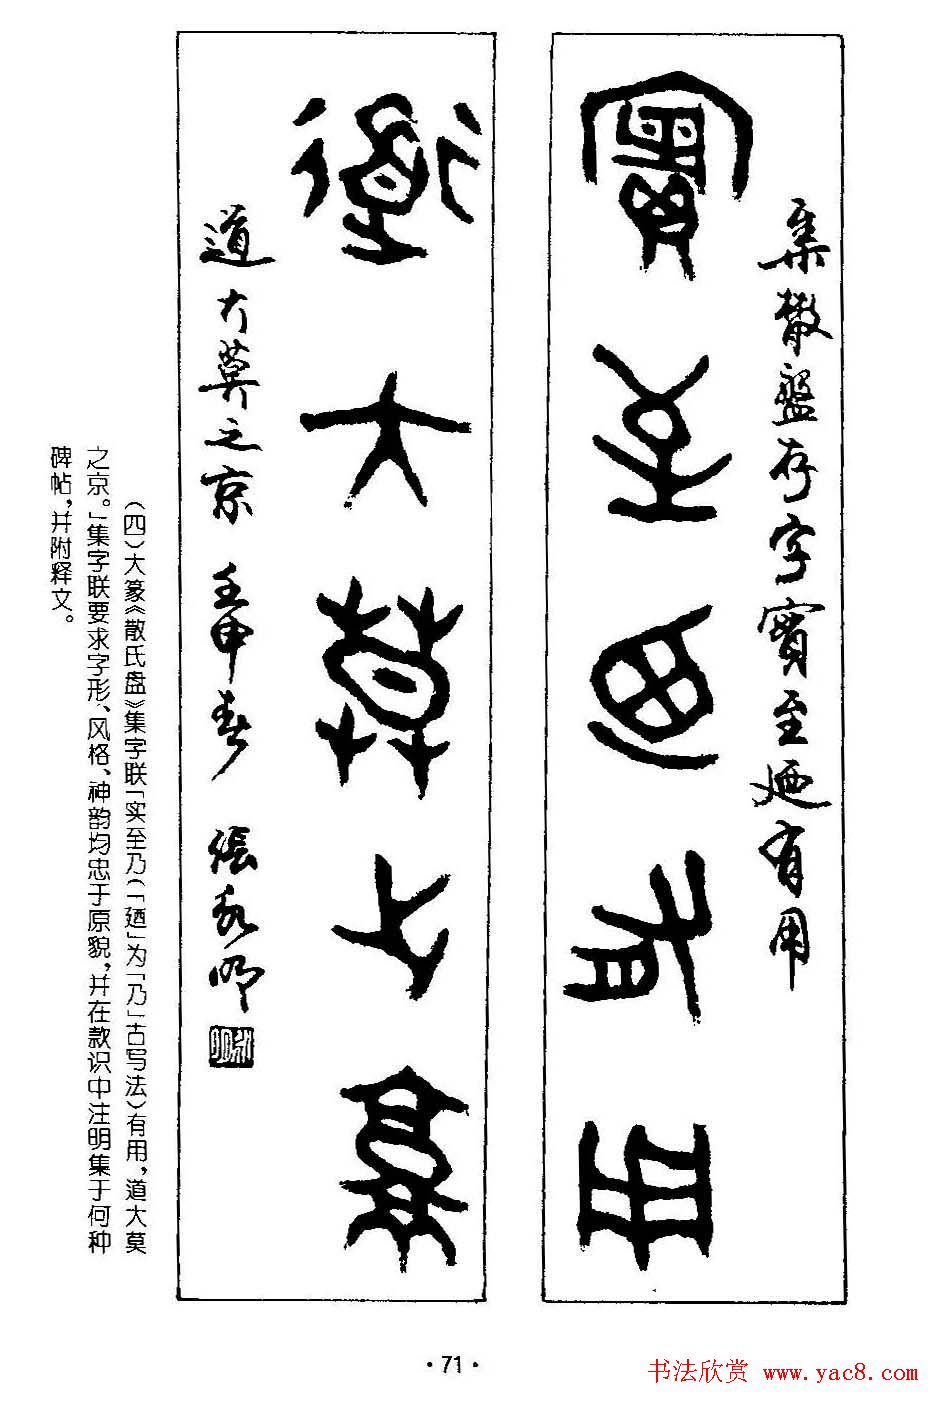 集散盤存字實至廼有用
實至廼有用
道大莫之京
道大莫之京 壬申春 張永明
（四）大篆《散氏盘》集字联「实至乃（「廼」为「乃」古写法）有用，道大莫
之京。」集字联要求字形、风格、神韵均忠于原貌，并在款识中注明集于何种
碑帖，并附释文。
·71·
书法欣赏 www.yac8.com